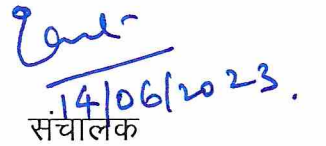 14/06/2023.
संचालक